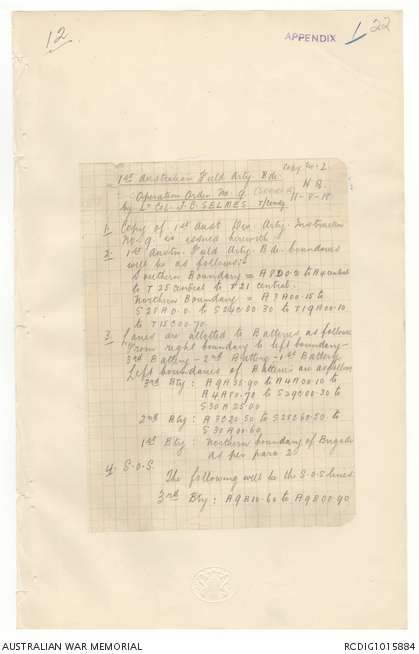 12
APPENDIX 1/22
Copy No. 2
1st Australian Field Arty Bde.
H.Q.
Operation Order No. 9
11-8-18
by Lt Col. J. C. SELMES
1. Copy of 1st Aust Div. Arty. Instruction
No. 9 is issued herewith
2. 1st Austn. Field Arty. Bde. boundaries
will be as follows:-
Southern Boundary = A8D0.0 to A4 central
to T25 central to T21 central.
Northern Boundary = A7A00.15 to
S28A0.0 to S24C00.30 to T19A00.10
to T15C00.70.
3. Lanes are allotted to Batteries as follows
From right boundary to left boundary -
3rd Battery - 2nd Battery - 1st Battery.
Left boundaries of Batteries are as follows
3rd Bty: A9A35.90 to A4A00.10 to
A4A10.70 to S29C00.30 to
S30A25.00
2nd Bty: A3C20.50 to S28C60.50 to
S30A00.60
1st Bty: Northern boundary of Brigade
as per para 2.
4. S.O.S.
The following will be the S.O.S. lines
3rd Bty: A9A10.60 to A9B00.90
AUSTRALIAN WAR MEMORIAL
RCDIG1015884